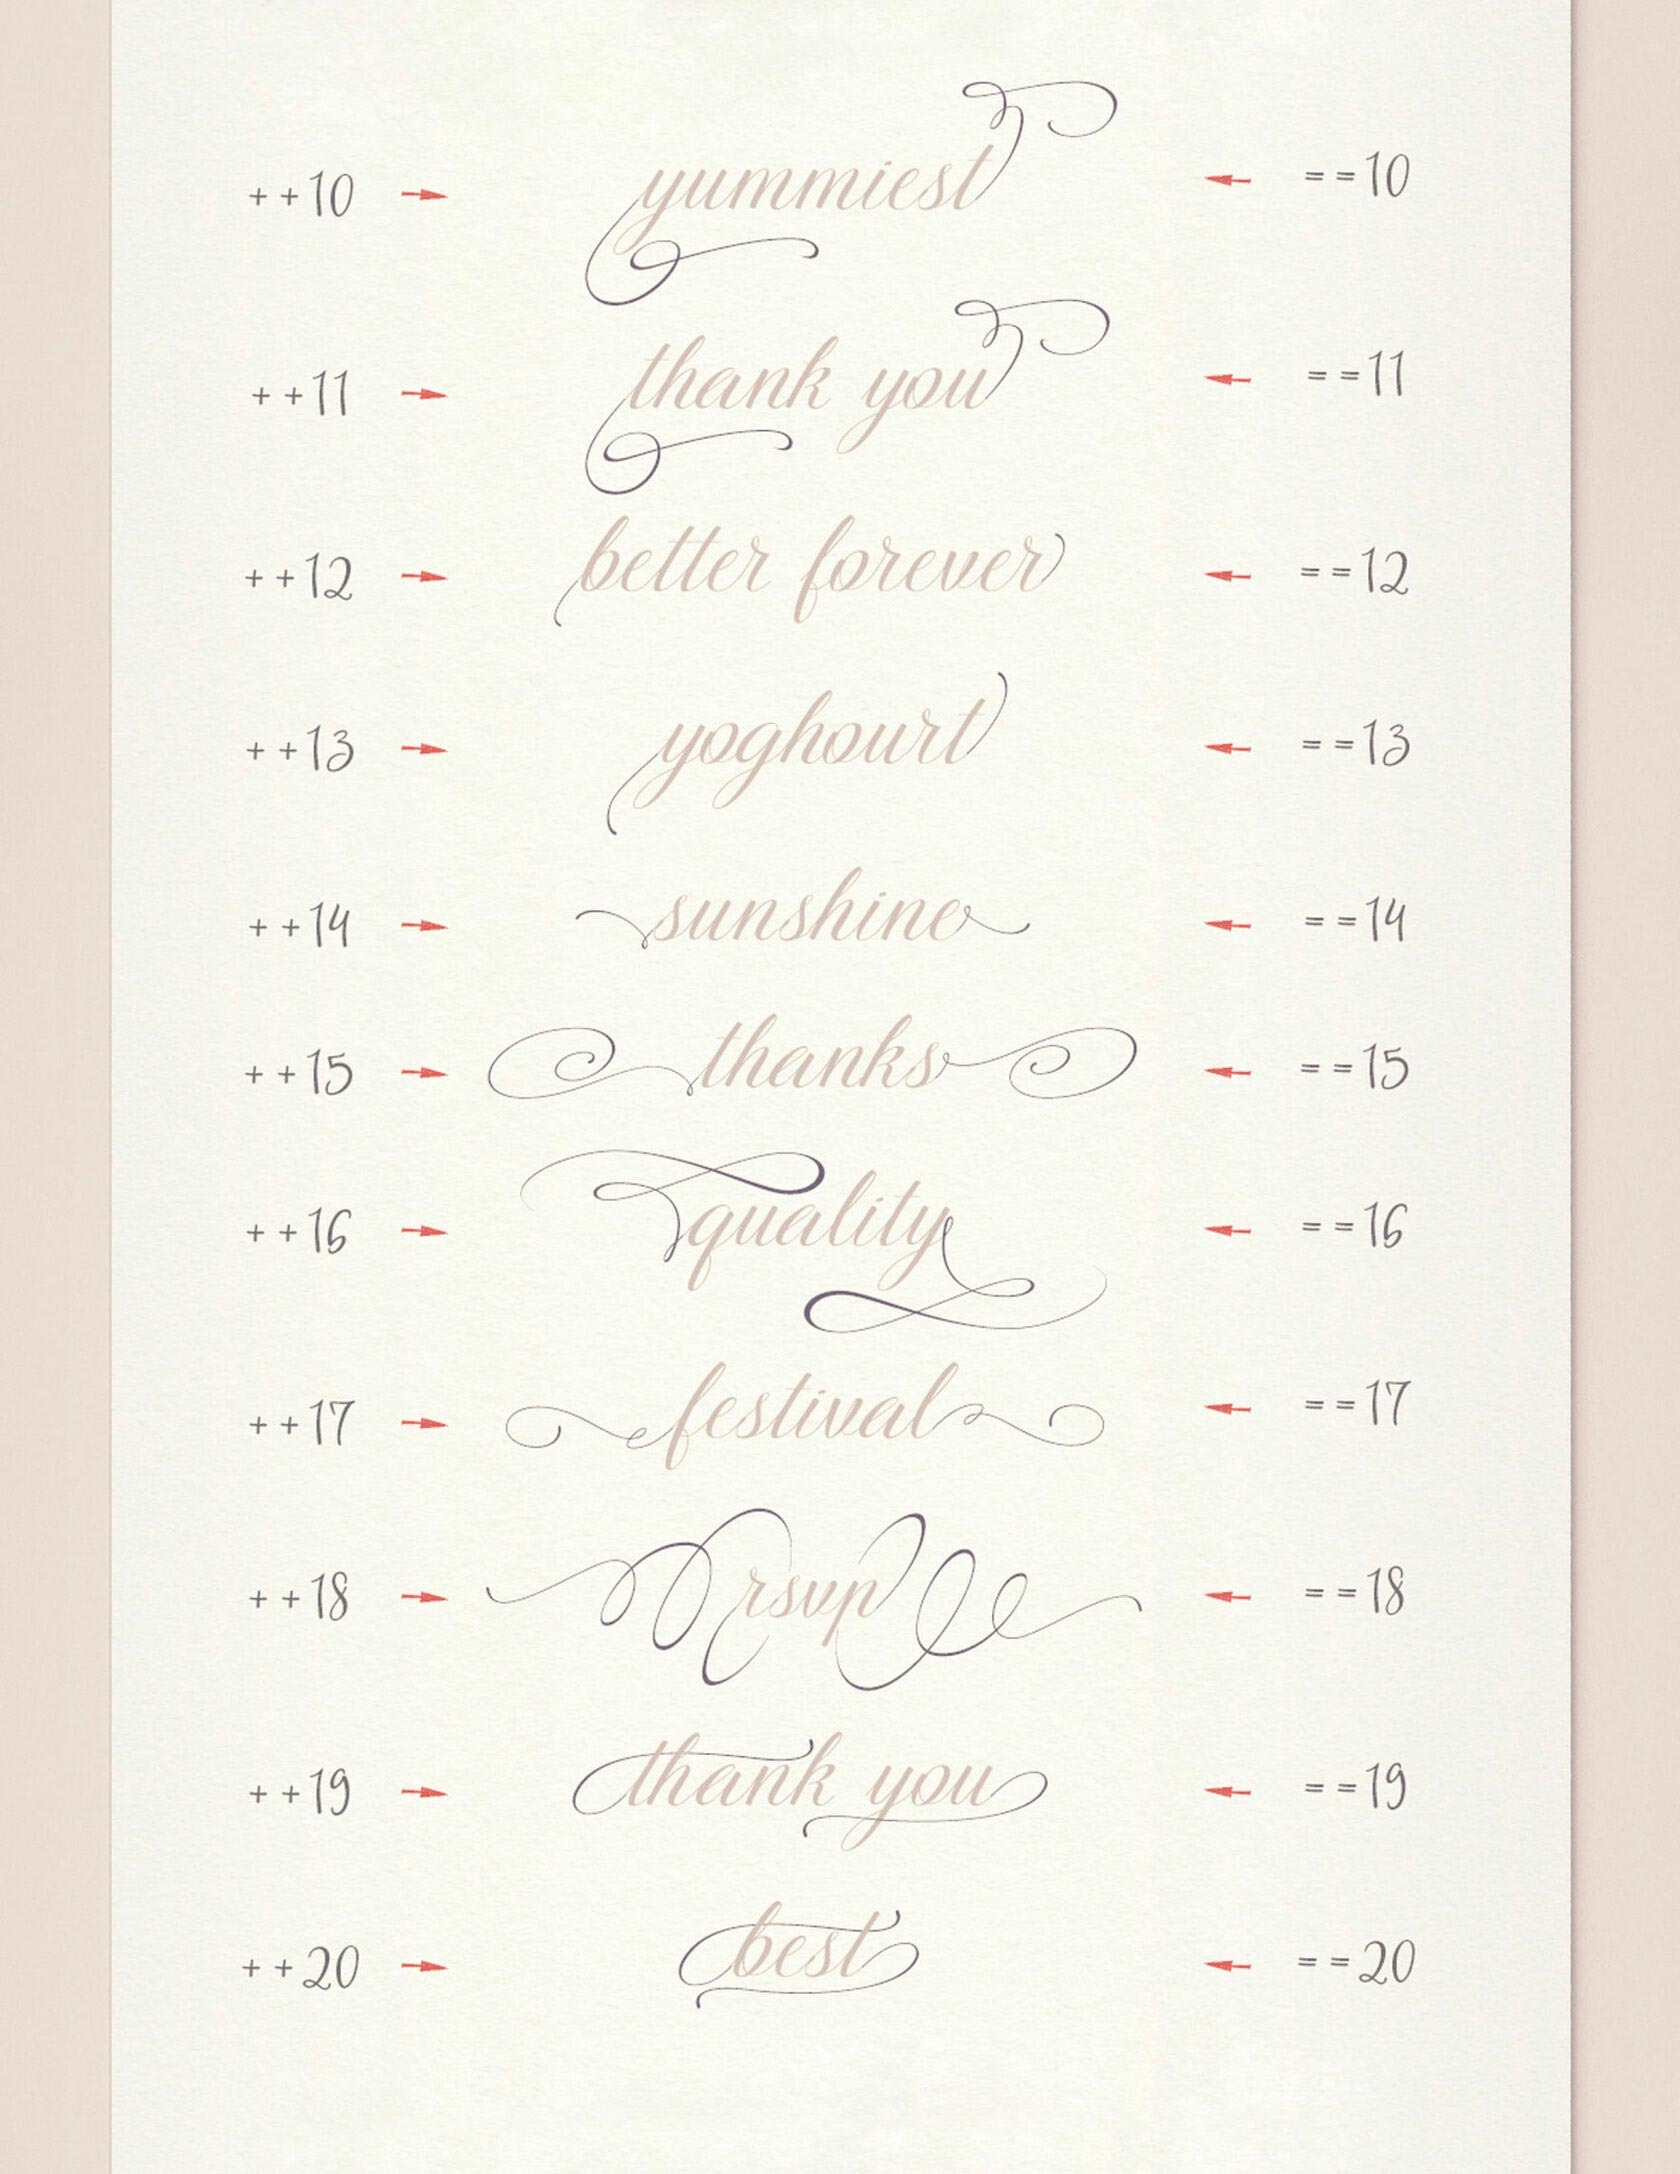 ++10 → yummiest ← ==10
++11 → thank you ← ==11
++12 → better forever ← ==12
++13 → yoghourt ← ==13
++14 → sunshine ← ==14
++15 → thanks ← ==15
++16 → quality ← ==16
++17 → festival ← ==17
++18 → rsvp ← ==18
++19 → thank you ← ==19
++20 → best ← ==20